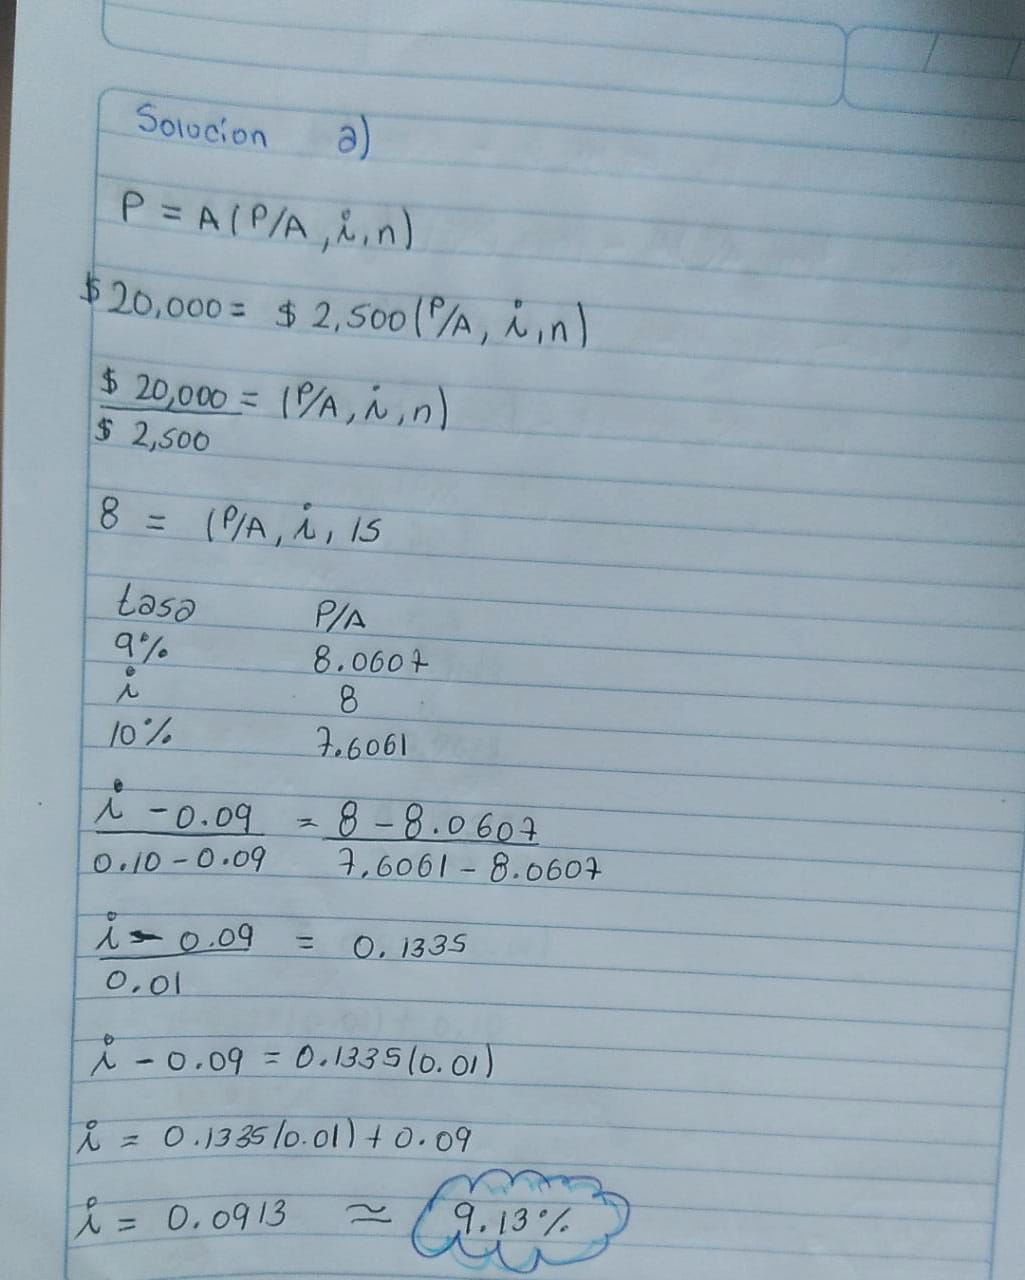 Solucion a)
P = A(P/A, i, n)
$20,000 = $ 2,500(P/A, i, n)
$ 20,000 = (P/A, i, n)
$ 2,500
8 = (P/A, i, 15
tasa P/A
9% 8.0607
i 8
10% 7.6061
i - 0.09 = 8 - 8.0607
0.10 - 0.09 7.6061 - 8.0607
i - 0.09 = 0.1335
0.01
i - 0.09 = 0.1335(0.01)
i = 0.1335(0.01) + 0.09
i = 0.0913 ≈ 9.13%